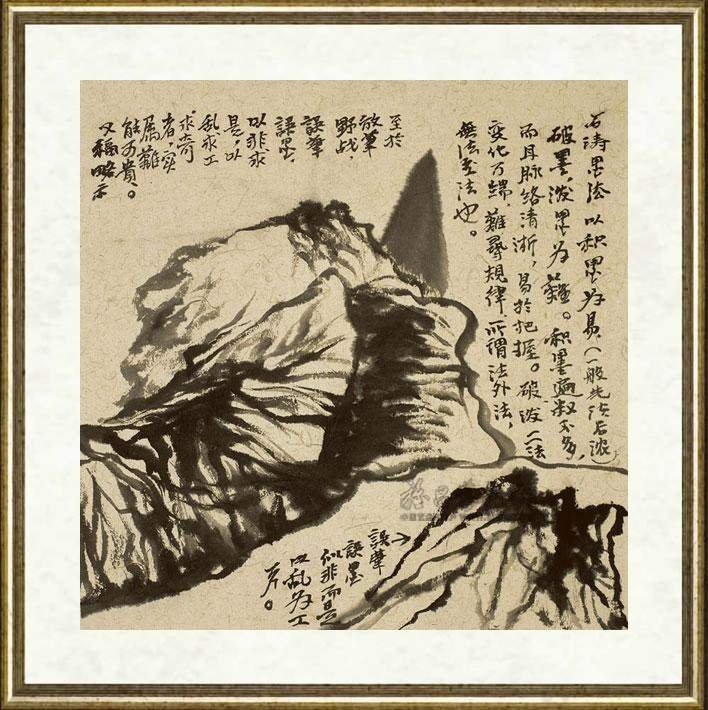 石涛墨法以积墨为易(一般先淡后浓)
破墨,泼墨为難。积墨遍数不多,
而且脉络清淅,易於把握。破泼二法
变化万端,難尋規律,所謂法外法,
無法至法也。
至於
放筆
野战,
誤筆
誤墨,
以非求
是,以
乱求工
求奇
者,实
属難
能可貴。
稿略示
誤筆
誤墨
似非而是
以乱为工